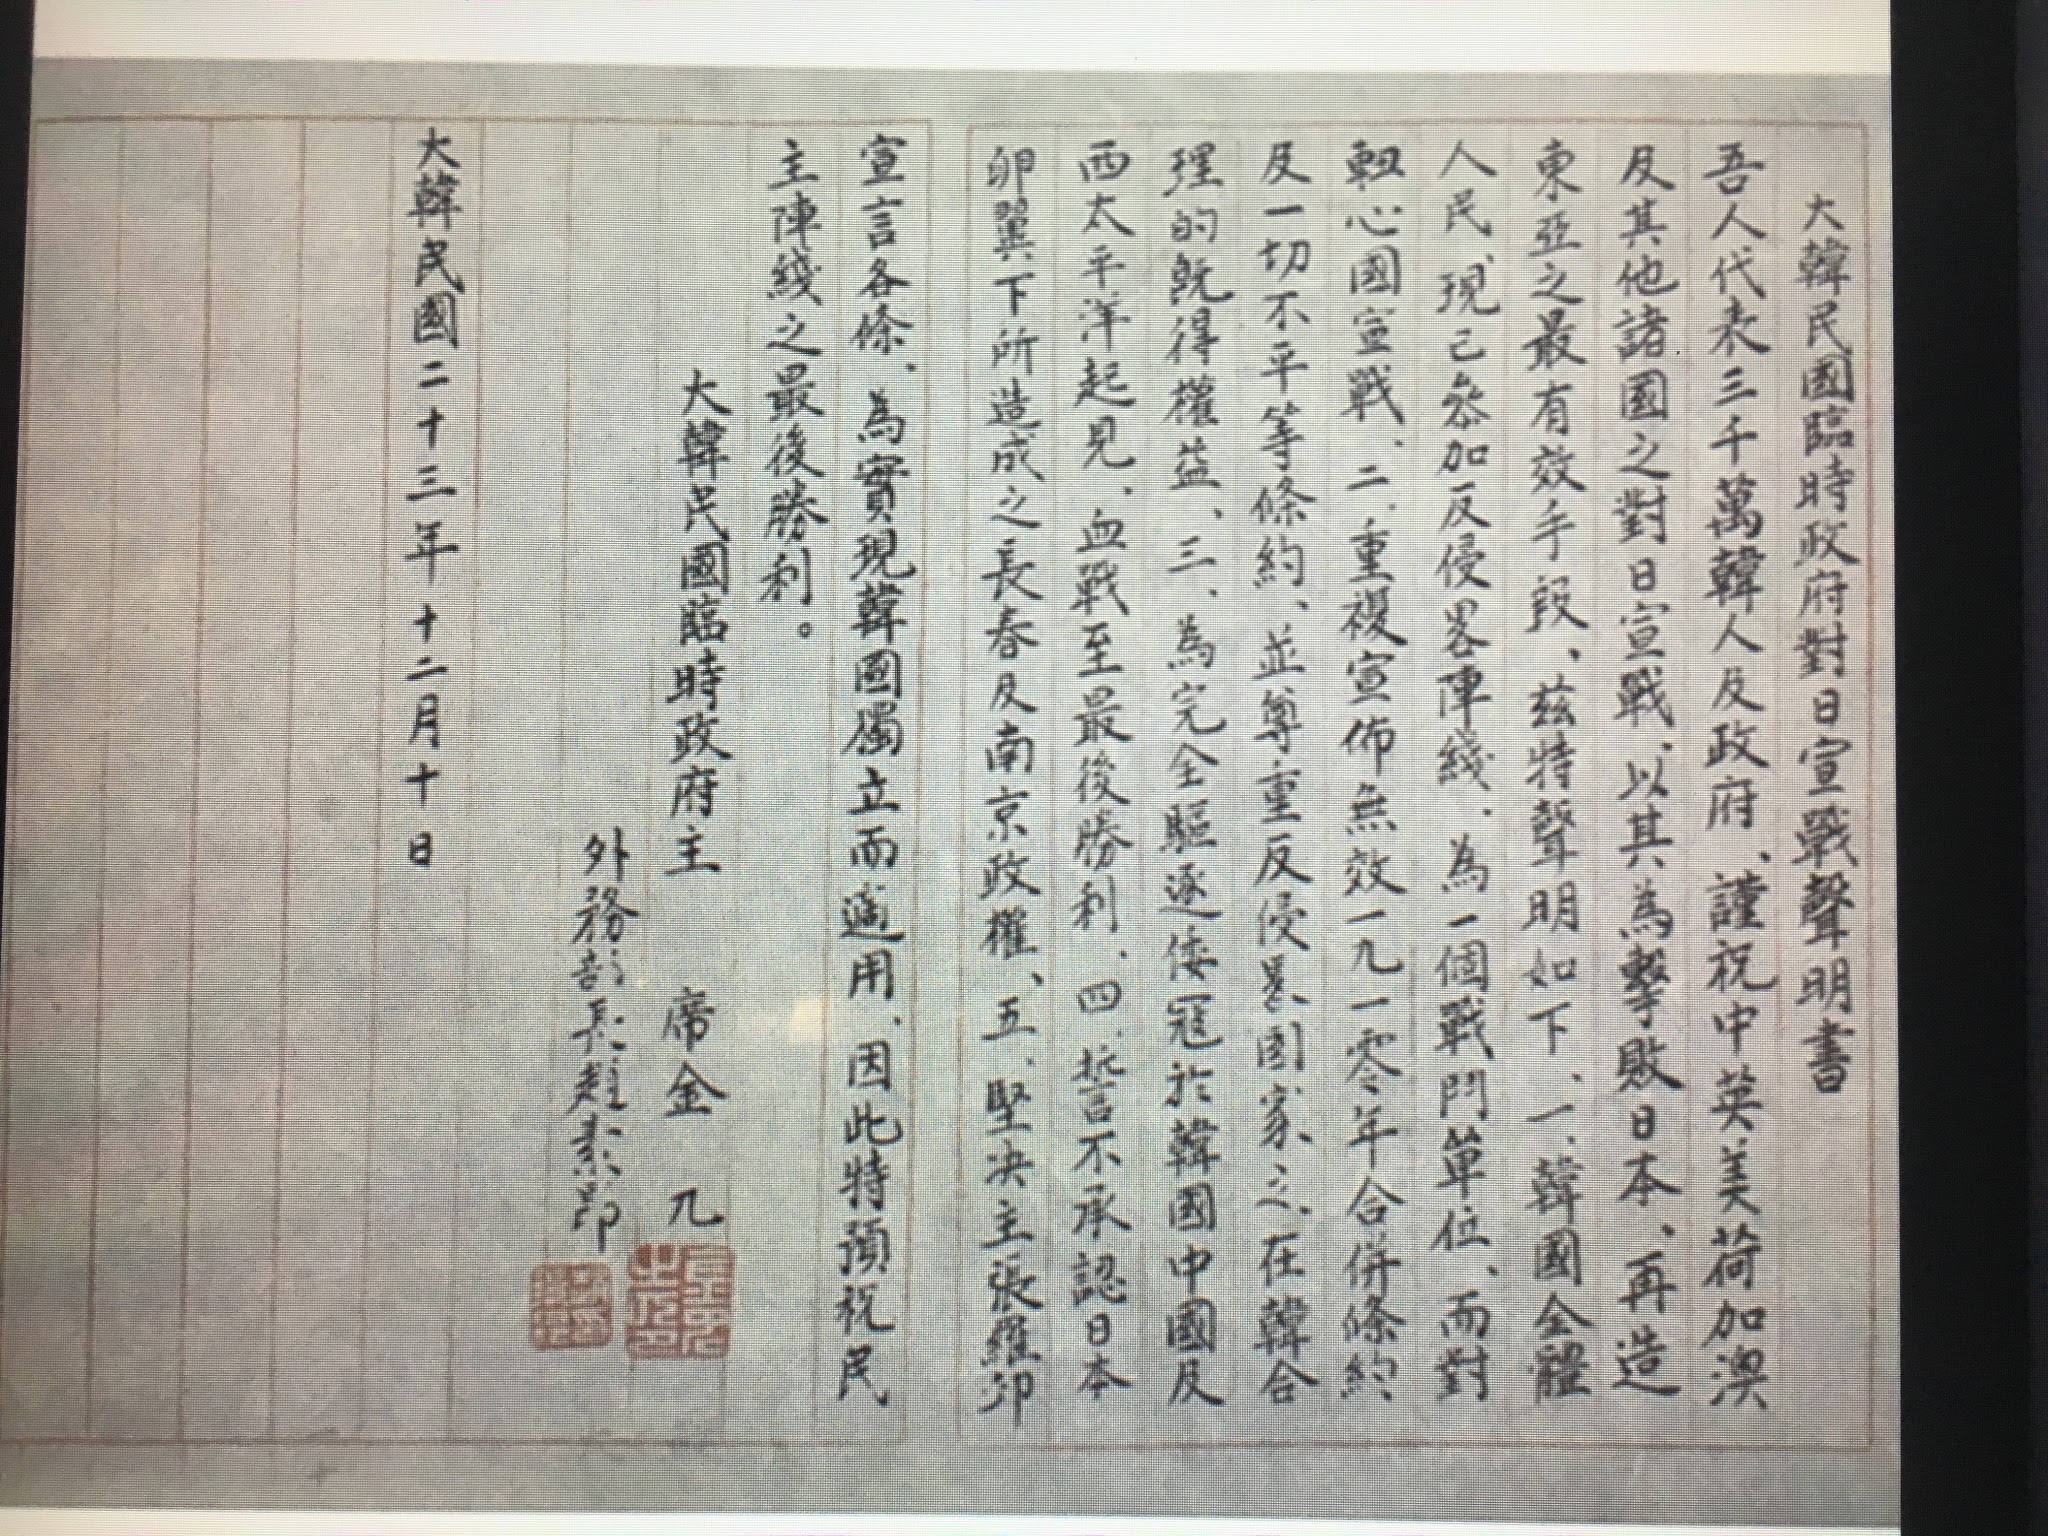 大韓民國臨時政府對日宣戰聲明書
吾人代表三千萬韓人及政府、謹祝中英美荷加澳
及其他諸國之對日宣戰、以其為擊敗日本、再造
東亞之最有效手段、茲特聲明如下、一、韓國全體
人民、現已參加反侵畧陣綫、為一個戰鬥單位、而對
軸心國宣戰、二、重複宣佈無效一九一零年合併條約
及一切不平等條約、並尊重反侵畧國家之在韓合
理的既得權益、三、為完全驅逐倭寇於韓國中國及
西太平洋起見、血戰至最後勝利、四、誓不承認日本
卵翼下所造成之長春及南京政權、五、堅决主張羅邱
宣言各條、為實現韓國獨立而適用、因此特預祝民
主陣綫之最後勝利。
大韓民國臨時政府主 席金 九
外務部長趙素昂
大韓民國二十三年十二月十日